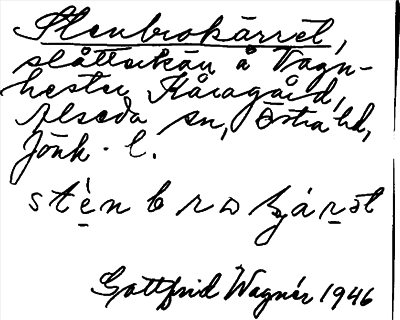 Stenbrokärret,
slåttekärr å Vagn-
hester Kåragård,
Alseda sn, Östra hd,
Jönk. l.
Gottfrid Wagnér 1946